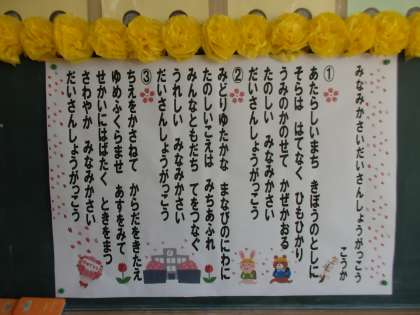 みなみかさいだいさんしょうがっこう
こうか
①
あたらしいまち きぼうのとしに
そらは はてなく ひもひかり
うみのかのせて かぜかおる
たのしい みなみかさい
だいさんしょうがっこう
②
みどりゆたかな まなびのにわに
たのしいこえは みちあふれ
みんなともだち てをつなぐ
うれしい みなみかさい
だいさんしょうがっこう
③
ちえをかさねて からだをきたえ
ゆめふくらませ あすをみて
せかいにはばたく ときをまつ
さわやか みなみかさい
だいさんしょうがっこう